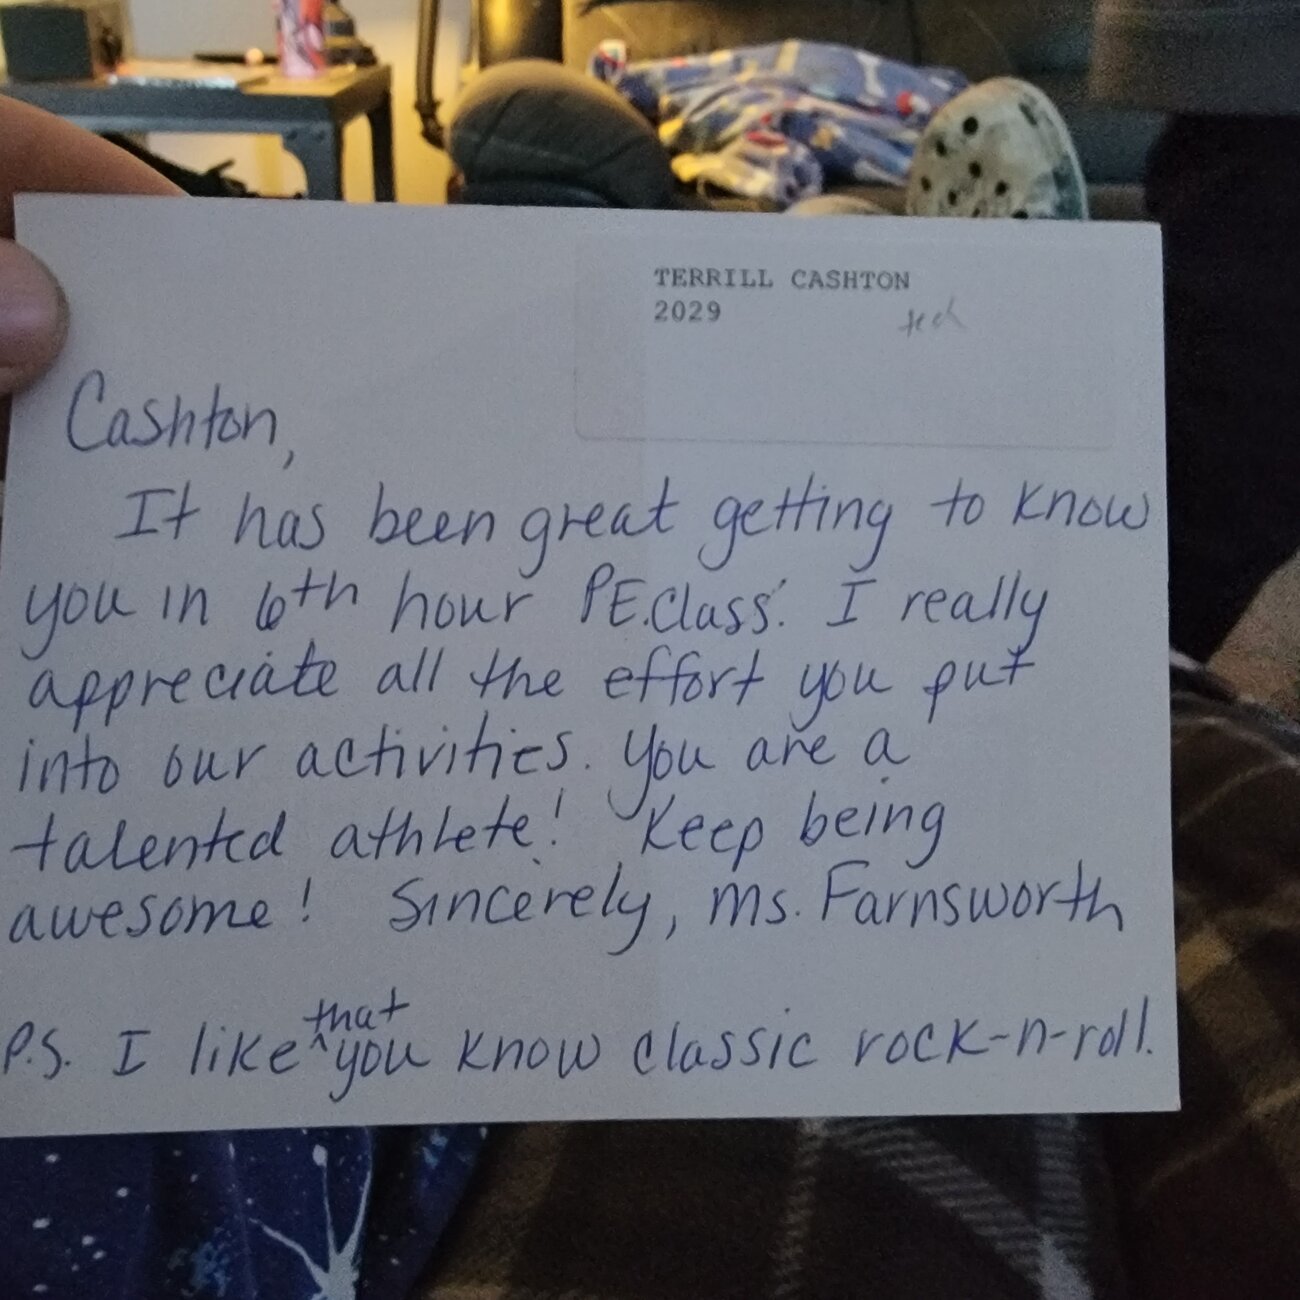 TERRILL CASHTON
2029
tech
Cashton,
It has been great getting to know
you in 6th hour P.E. Class. I really
appreciate all the effort you put
into our activities. You are a
talented athlete! Keep being
awesome! Sincerely, Ms. Farnsworth
P.S. I like ^that you know classic rock-n-roll.